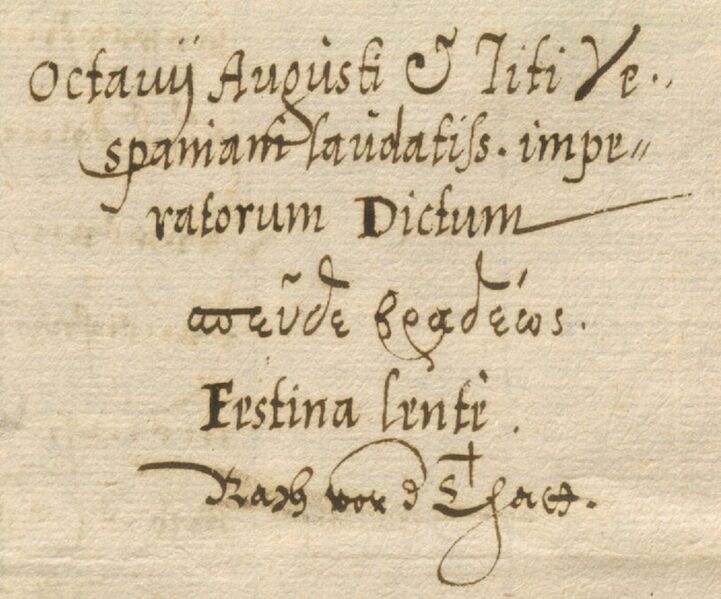 Octauij Augusti & Titi Ve..
spaniani laudatiss. impe=
ratorum Dictum
σπεῦδε βραδέως.
Festina lentè.
Rath vor d Thatt.